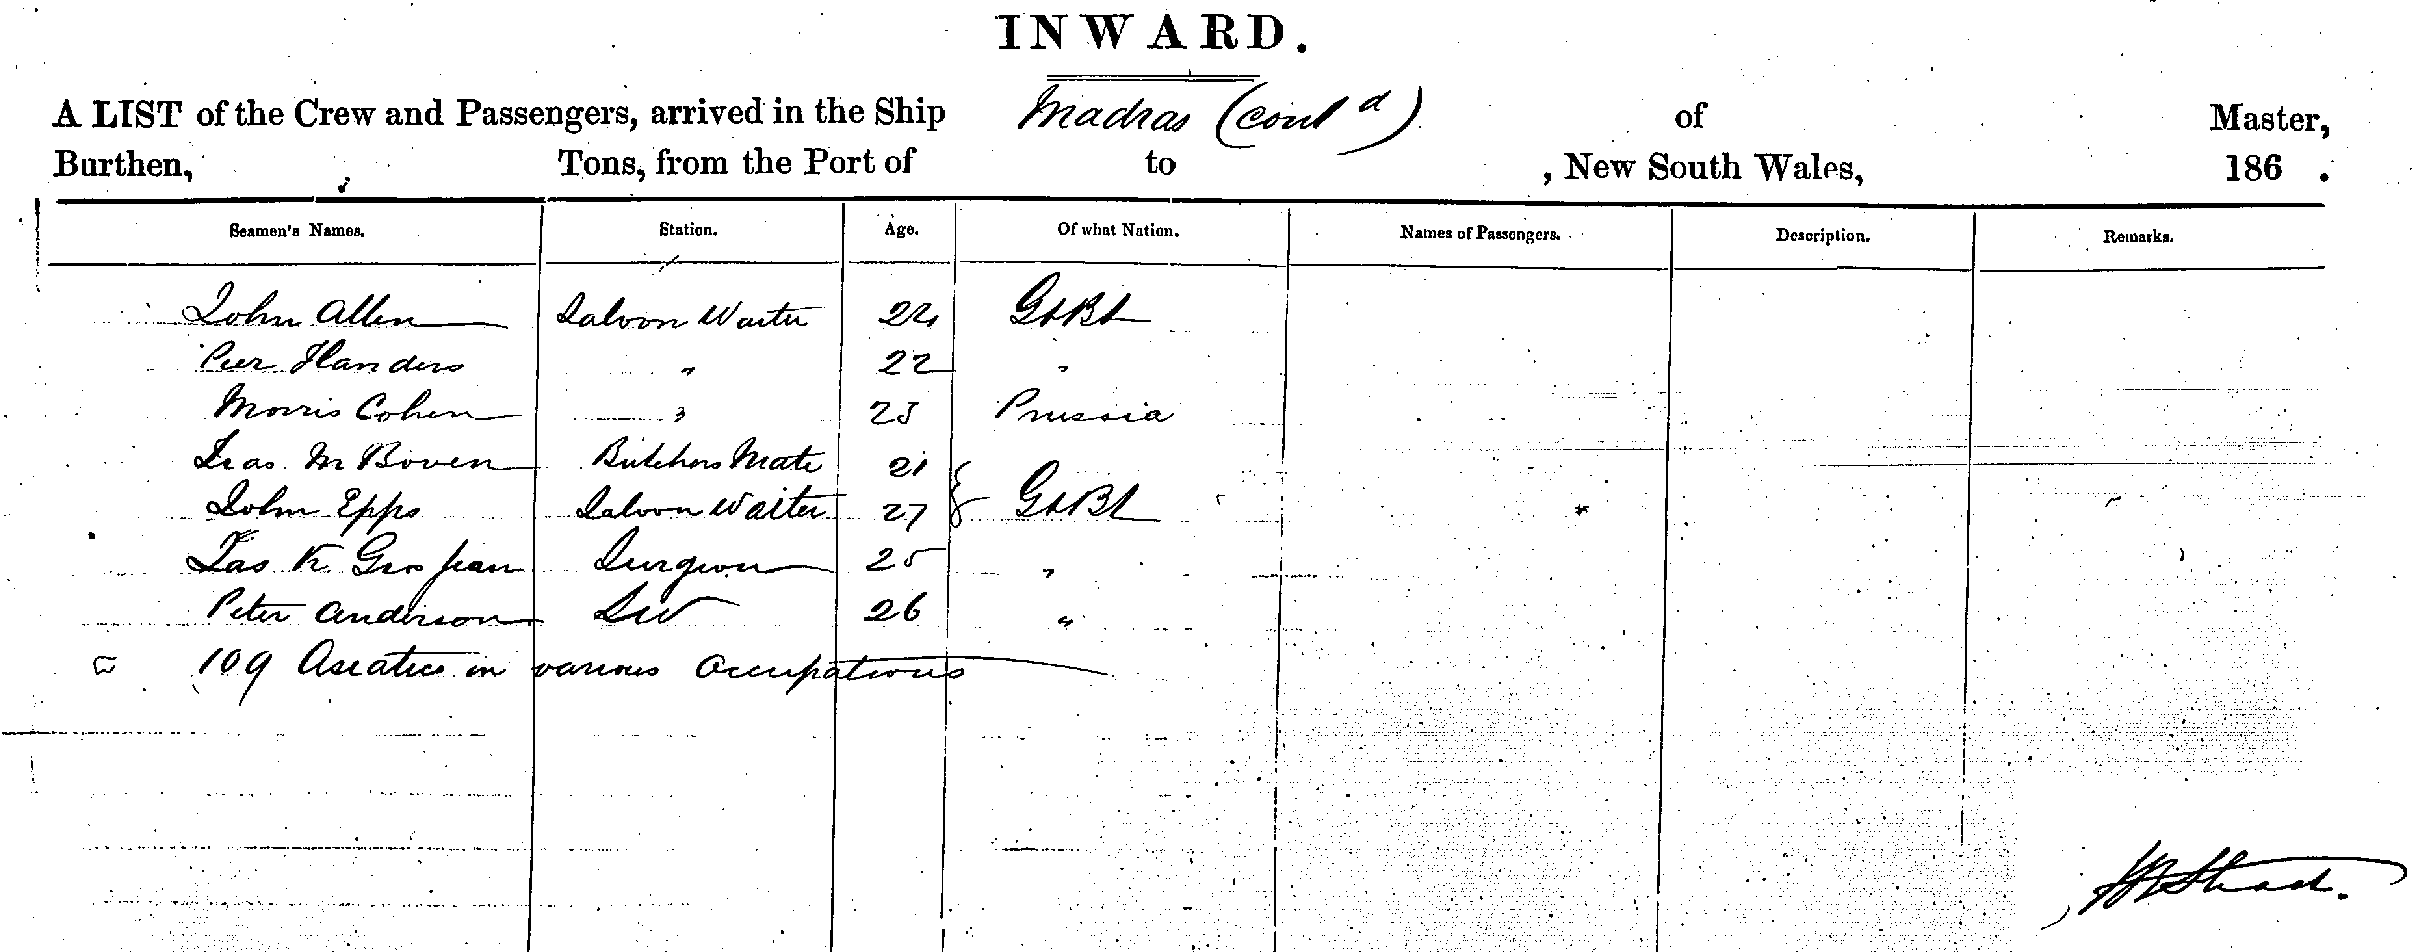 INWARD.
A LIST of the Crew and Passengers, arrived in the Ship Madras (contd) of Master,
Burthen, Tons, from the Port of to , New South Wales, 186 .
Seamen's Names. Station. Age. Of what Nation. Names of Passengers. Description. Remarks.
John Allen Saloon Waiter 22 Gt Bt
Peer Flanders " 22 "
Morris Cohen " 23 Prussia
M Boven Butchers Mate 21
John Epps Saloon Waiter 27 Gt Bt
Jas K Surgeon 25 "
Peter Anderson 26 "
109 Asiatics in various occupations